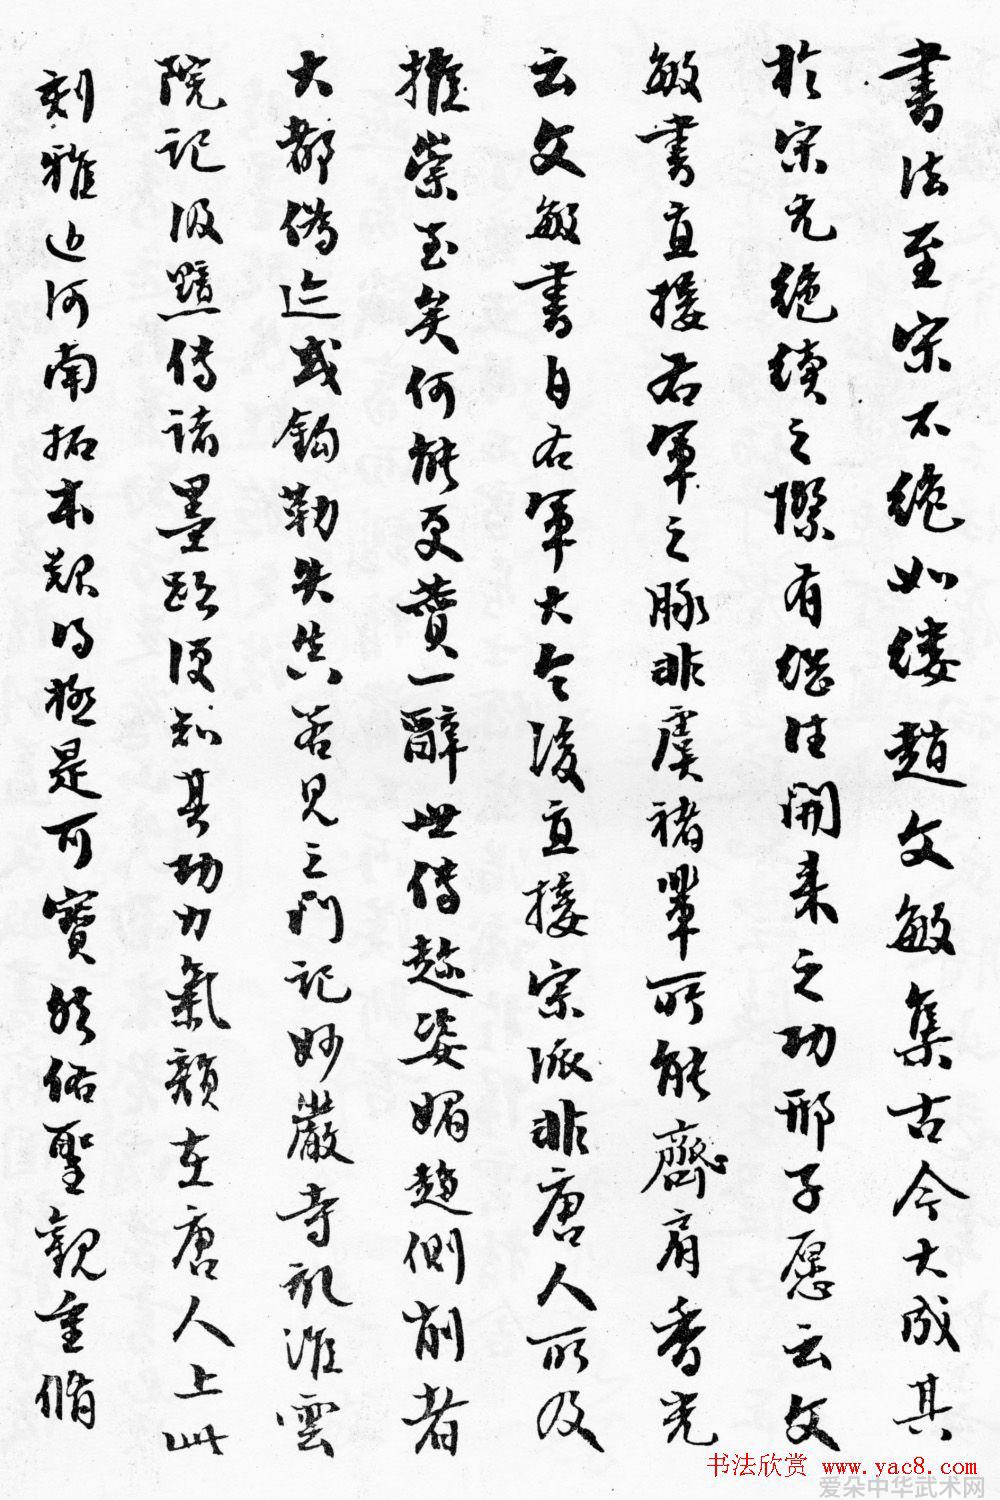 書法至宋不絕如縷趙文敏集古今大成其
於宋元絕續之際有繼往開来之功邢子愿云文
敏書直接右軍之脉非虞褚輩所能齊肩香光
云文敏書自右軍大令後直接宗派非唐人所及
推崇至矣何能更費一辭世傳趙姿媚趨側削者
大都偽迹或鉤勒失真若見三門記妙嚴寺記淮雲
院記汲黯傳諸墨跡便知其功力氣韻在唐人上此
刻雅近河南拓本觀明極是可寶然佑聖觀重脩
书法欣赏 www.yac8.com
爱朵中华武术网